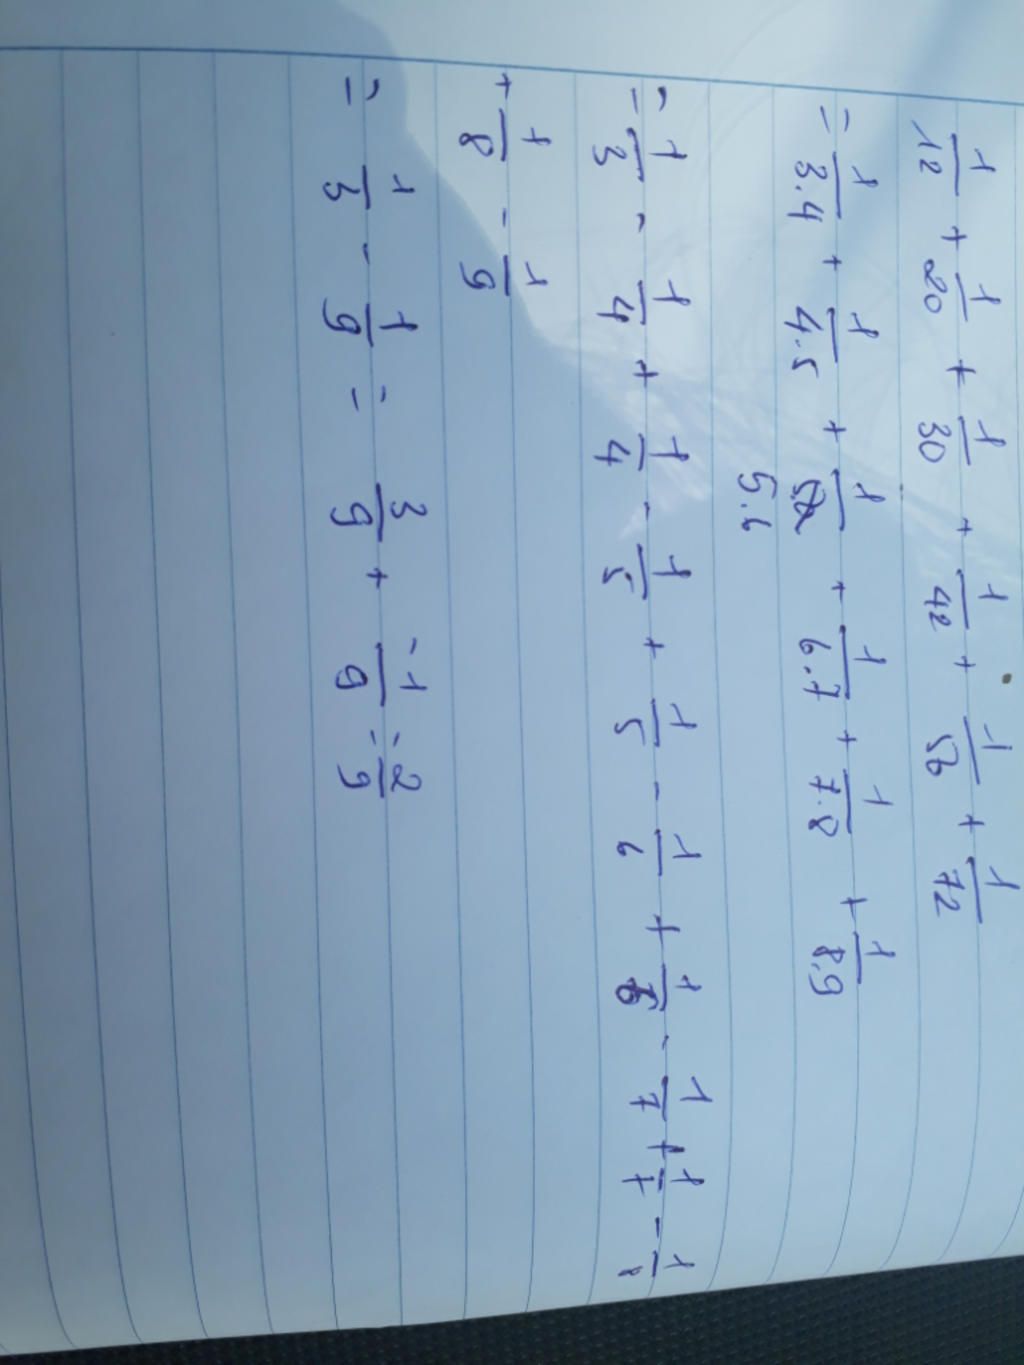 1/12 + 1/20 + 1/30 + 1/42 + 1/56 + 1/72
= 1/3.4 + 1/4.5 + 1/5.6 + 1/6.7 + 1/7.8 + 1/8.9
= 1/3 - 1/4 + 1/4 - 1/5 + 1/5 - 1/6 + 1/6 - 1/7 + 1/7 - 1/8
+ 1/8 - 1/9
= 1/3 - 1/9 = 3/9 + -1/9 = 2/9